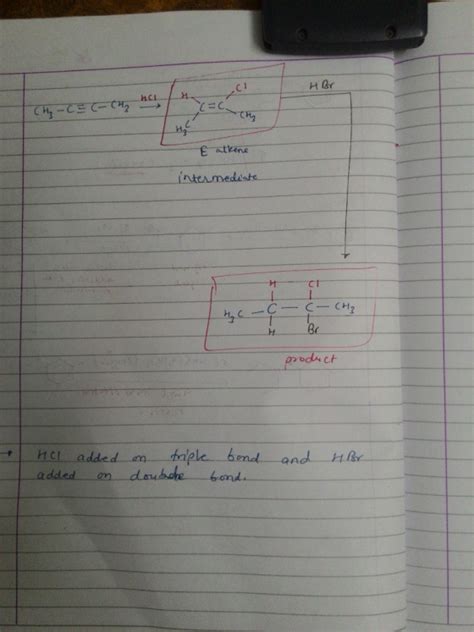 CH3 - C ≡ C - CH2 HCl → H Cl HBr
C = C
H3C CH3
E alkene
intermediate
H Cl
H3C - C - C - CH3
H Br
product
• HCl added on triple bond and HBr
added on double bond.